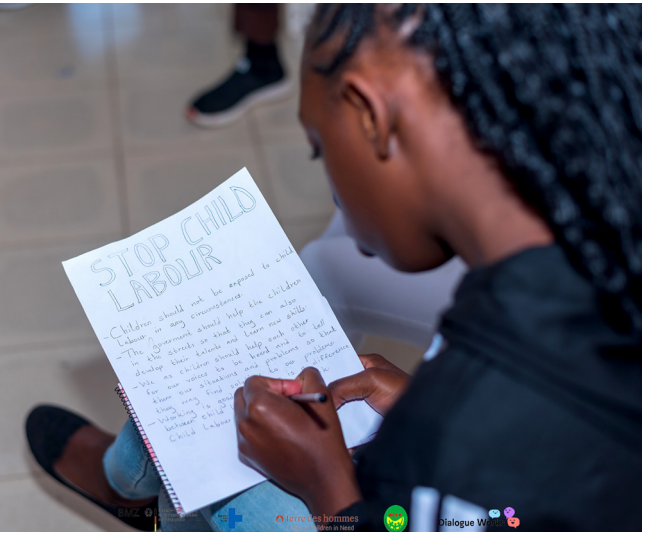 STOP CHILD
LABOUR
- Children should not be exposed to child
Labour in any circumstances
- The goverment should help the children
in the streets so that they can also
develop their talents and learn new skills
- We as children should help each other
for our voices to be heard and to tell
them our situations and problems so that
they may find to our problems
- Working is difference
between child
Child Labour
BMZ
terre des hommes
Children in Need
Dialogue Works